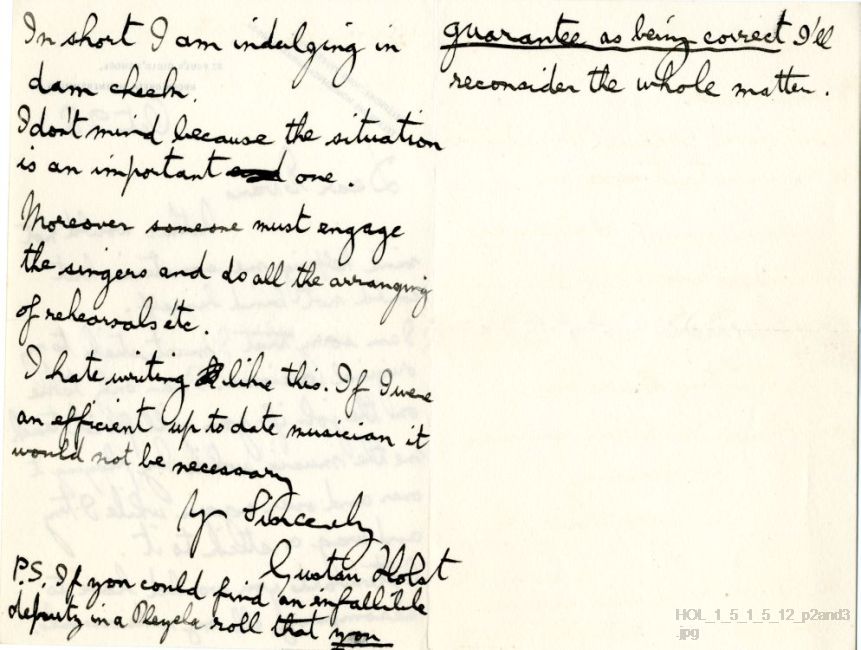 In short I am indulging in
dam cheek.
I don't mind because the situation
is an important one.
Moreover someone must engage
the singers and do all the arranging
of rehearsals etc.
I hate writing like this. If I were
an efficient up to date musician it
would not be necessary
Yr Sincerely
Gustav Holst
P.S. If you could find an infallible
deputy in a Pleyela roll that you
guarantee as being correct I'll
reconsider the whole matter.
HOL_1_5_1_5_12_p2and3
.jpg